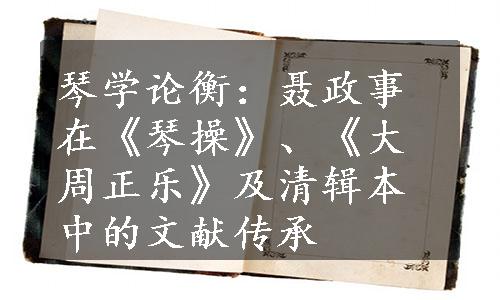 琴学论衡：聂政事
在《琴操》、《大
周正乐》及清辑本
中的文献传承